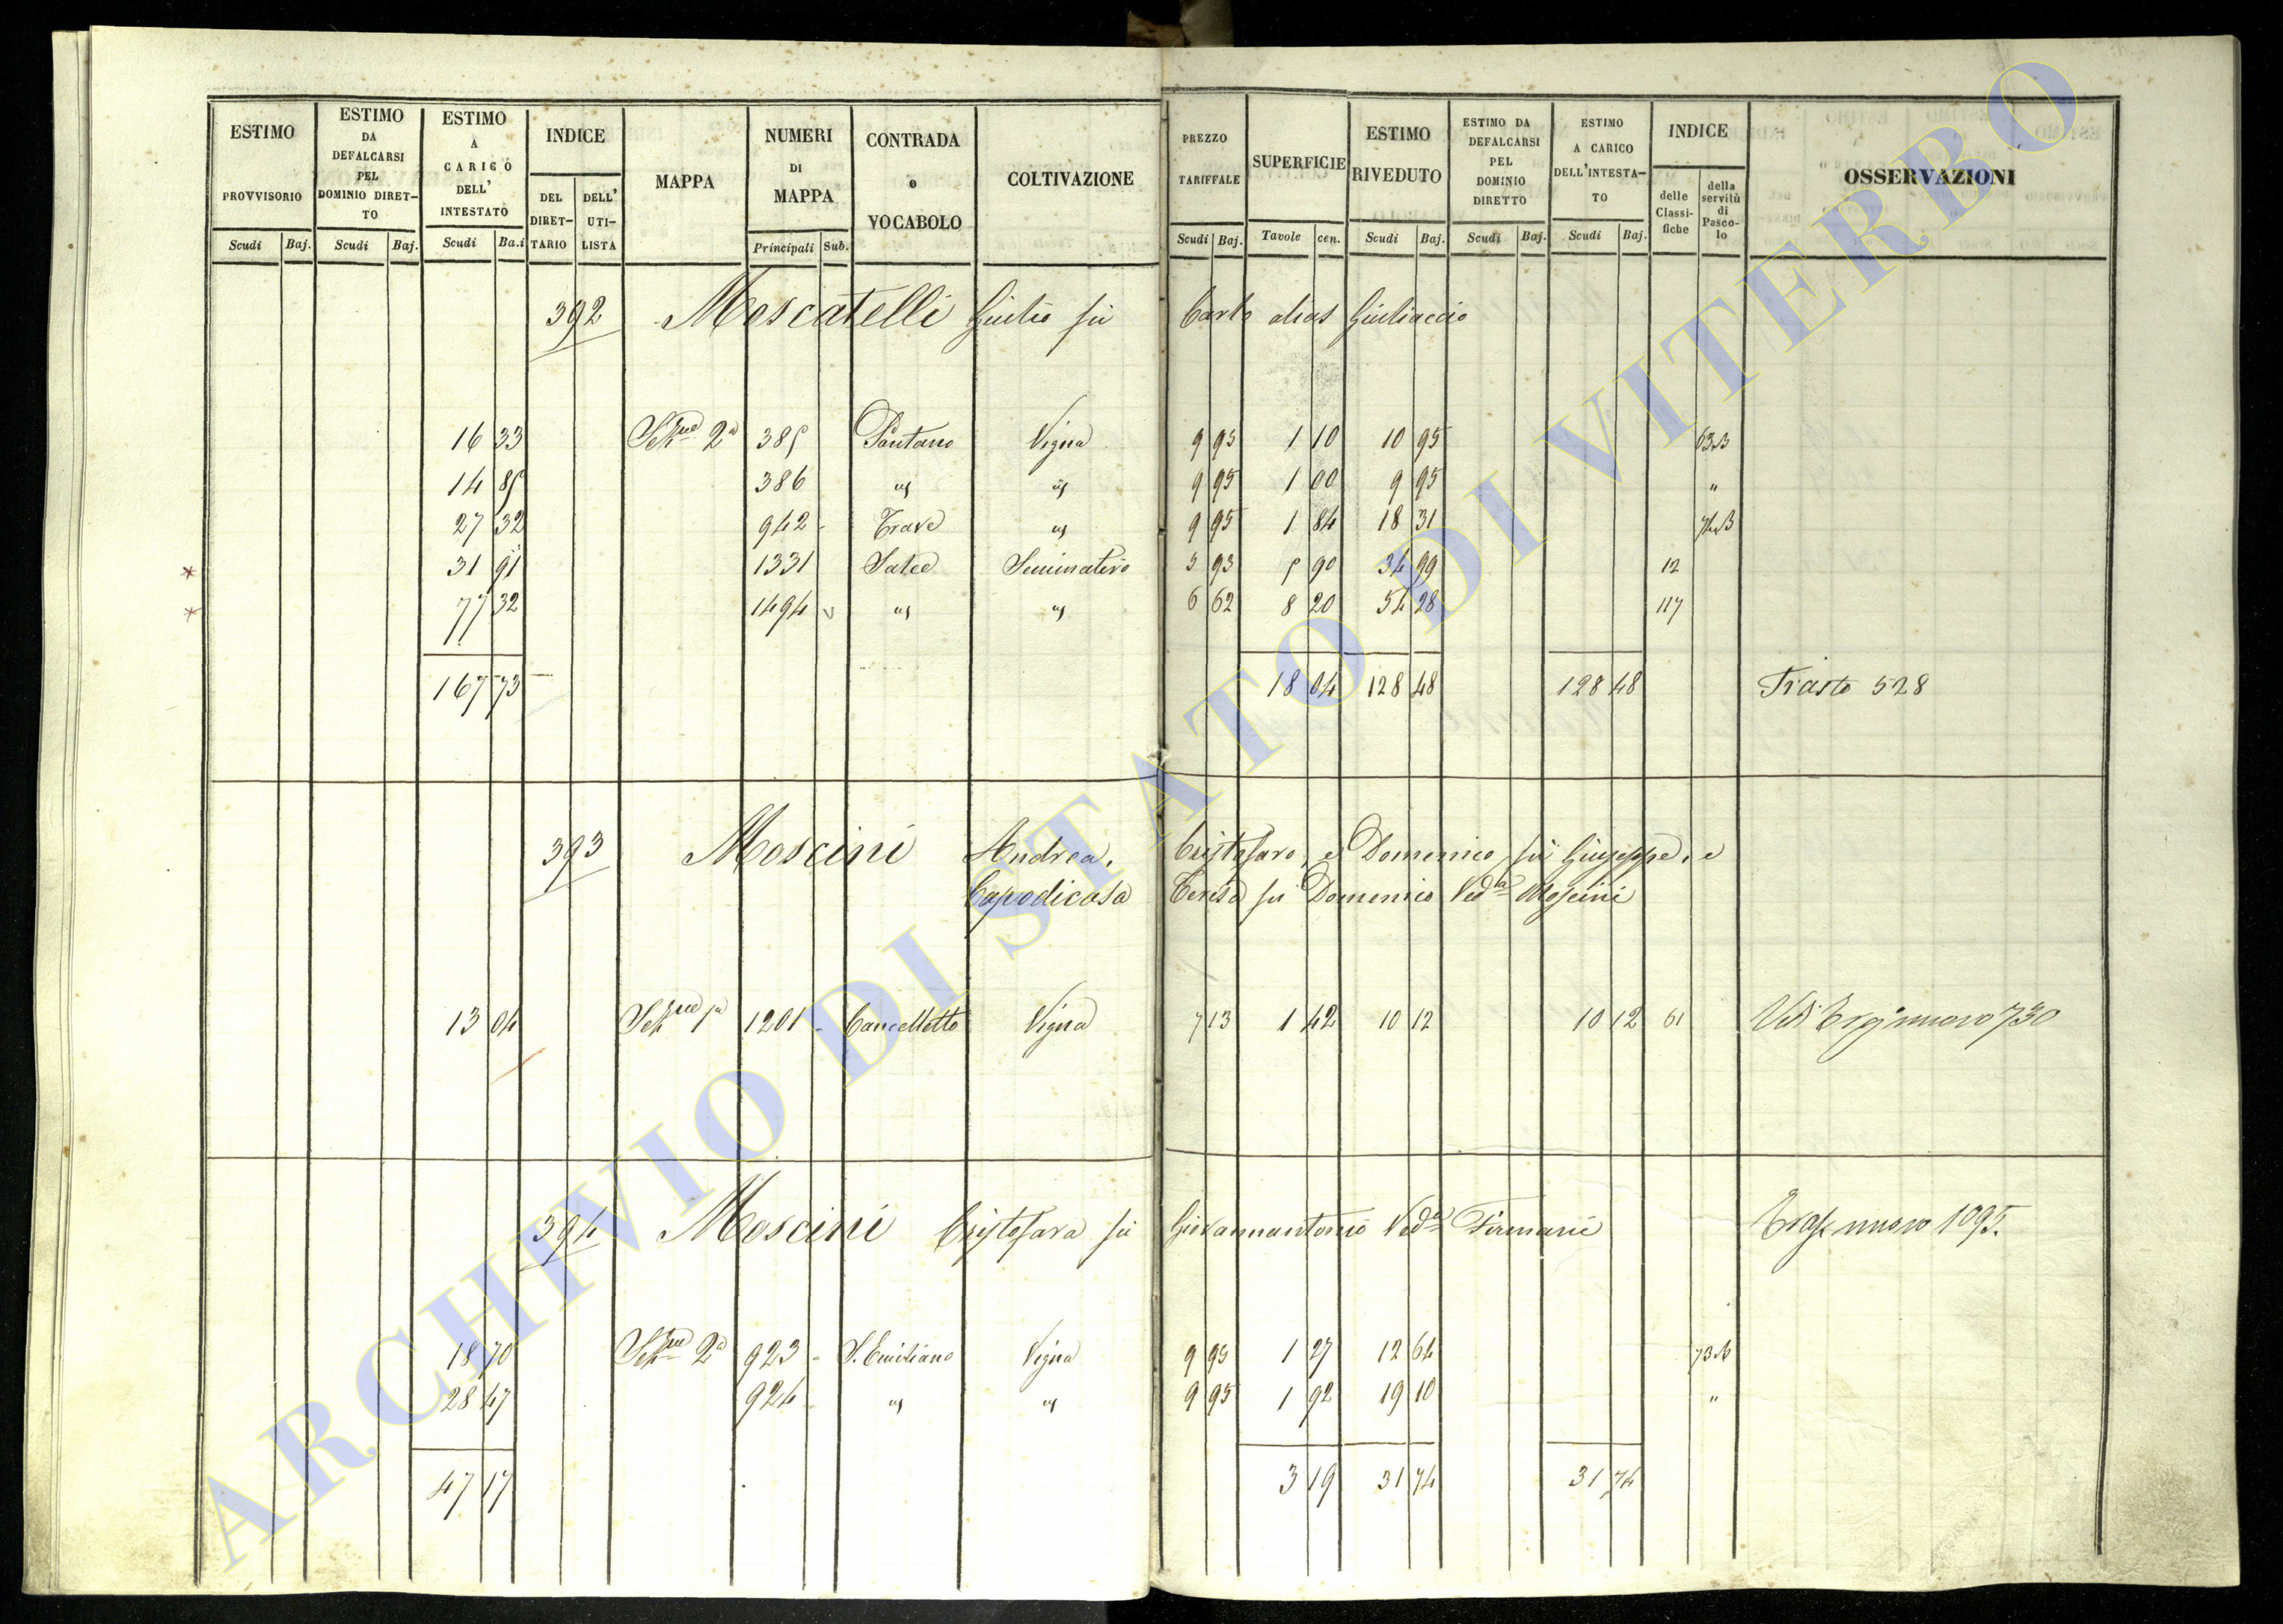 ESTIMO PROVVISORIO | ESTIMO DA DEFALCARSI PEL DOMINIO DIRET-TO | ESTIMO A CARICO DELL' INTESTATO | INDICE | MAPPA | NUMERI DI MAPPA | CONTRADA o VOCABOLO | COLTIVAZIONE | PREZZO TARIFFALE | SUPERFICIE | ESTIMO RIVEDUTO | ESTIMO DA DEFALCARSI PEL DOMINIO DIRETTO | ESTIMO A CARICO DELL'INTESTA-TO | INDICE | OSSERVAZIONI
DEL DIRET-TARIO | DELL' UTI-LISTA | delle Classi-fiche | della servitù di Pasco-lo
Scudi | Baj. | Scudi | Baj. | Scudi | Ba.i | Principali | Sub. | Scudi | Baj. | Tavole | cen. | Scudi | Baj. | Scudi | Baj. | Scudi | Baj.
392 Moscatelli Giulio fù Carlo alias Giuliaccio
16 33 2a 385 Pantano Vigna 9 95 1 10 10 95 63
14 85 386 " " 9 95 1 00 9 95 "
27 32 942 Trave " 9 95 1 84 18 31 74
31 91 1331 Salce Seminativo 5 93 5 90 34 99 12
77 32 1494 " " 6 62 8 20 54 28 117
167 73 18 04 128 48 128 48 528
393 Moscini Andrea, Cristofaro, e Domenico fù Giuseppe, e
Capodicasa Teresa fù Domenico Veda Moscini
13 04 1a 1201 Cancelletto Vigna 7 13 1 42 10 12 10 12 61 nuovo 730
394 Moscini Cristofara fù Giovannantonio Veda Firmani nuovo 1095.
18 70 2a 923 S. Emiliano Vigna 9 95 1 27 12 64 73
28 47 924 " " 9 95 1 92 19 10 "
47 17 3 19 31 74 31 74
ARCHIVIO DI STATO DI VITERBO